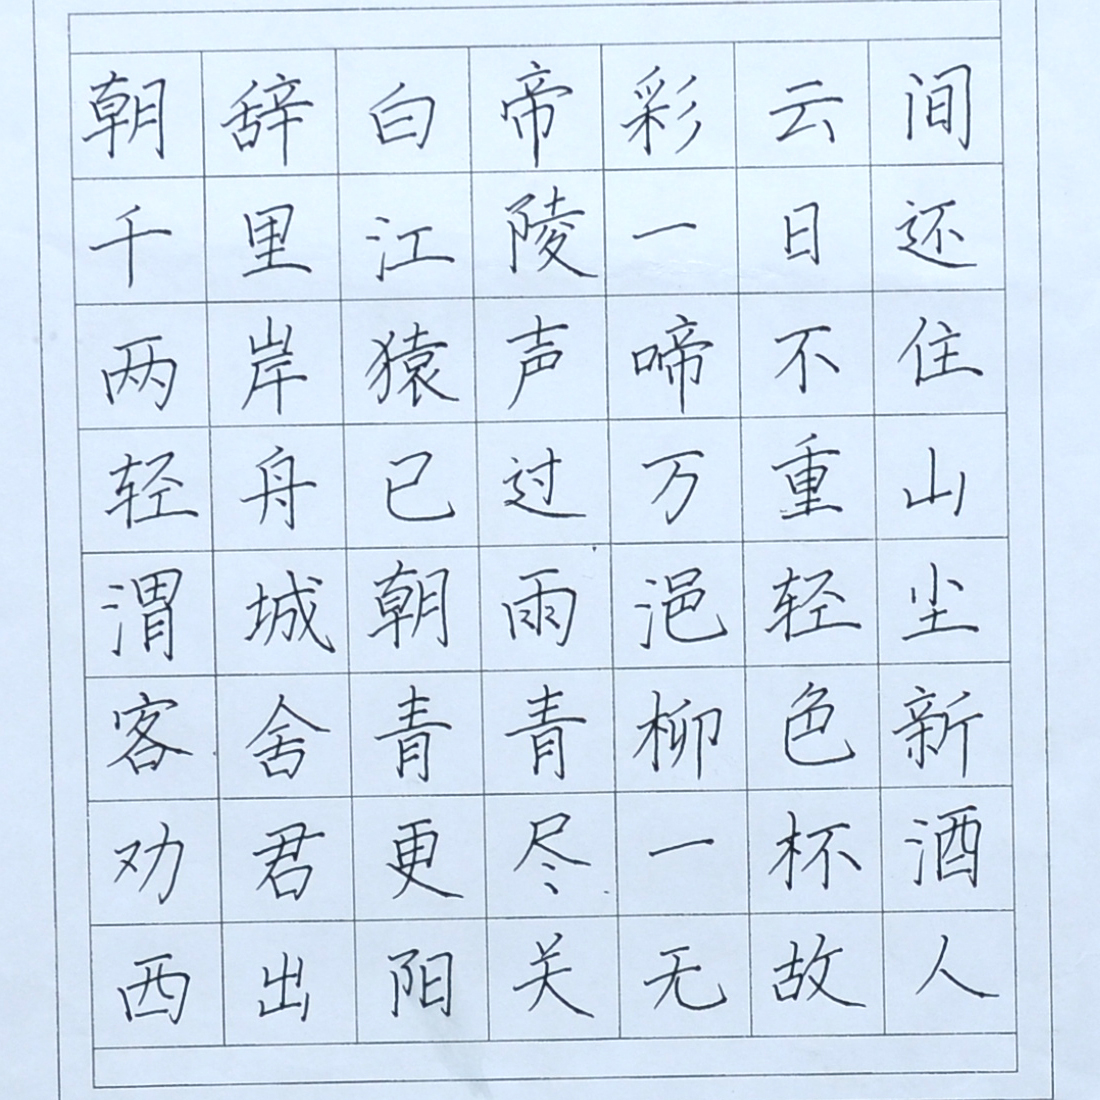 朝辞白帝彩云间
千里江陵一日还
两岸猿声啼不住
轻舟已过万重山
渭城朝雨浥轻尘
客舍青青柳色新
劝君更尽一杯酒
西出阳关无故人